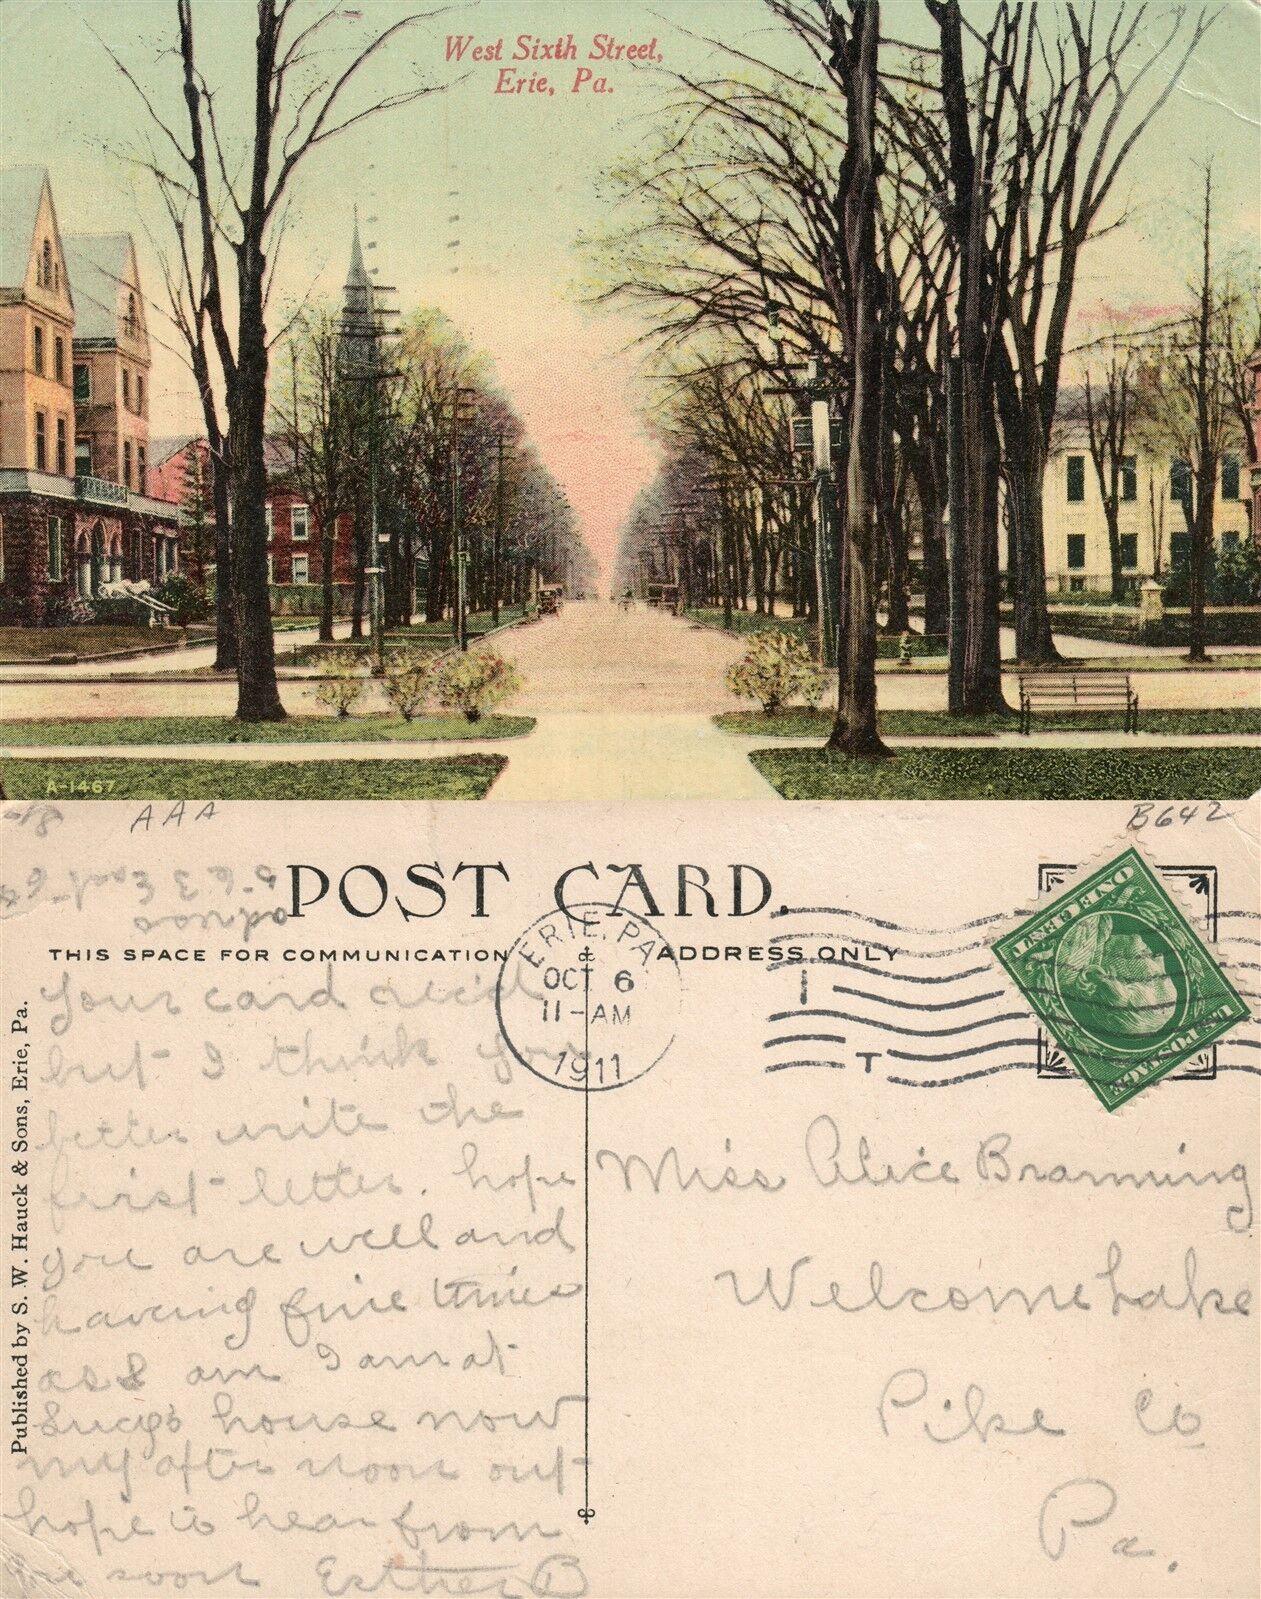 West Sixth Street,
Erie, Pa.
A-1467
AAA
B642
POST CARD.
THIS SPACE FOR COMMUNICATION
ADDRESS ONLY
address
563 East 6
ERIE, PA
OCT 6
11-AM
1911
I
T
ONE CENT
U.S. POSTAGE
Published by S. W. Hauck & Sons, Erie, Pa.
Your card rec'd
but I think you
better write the
frist letter. hope
you are well and
having fine times
as I am I am at
Lucy's house now
my after noon out
hope to hear from
you soon Esther B
Miss Alice Branning
Welcome Lake
Pike Co
Pa.